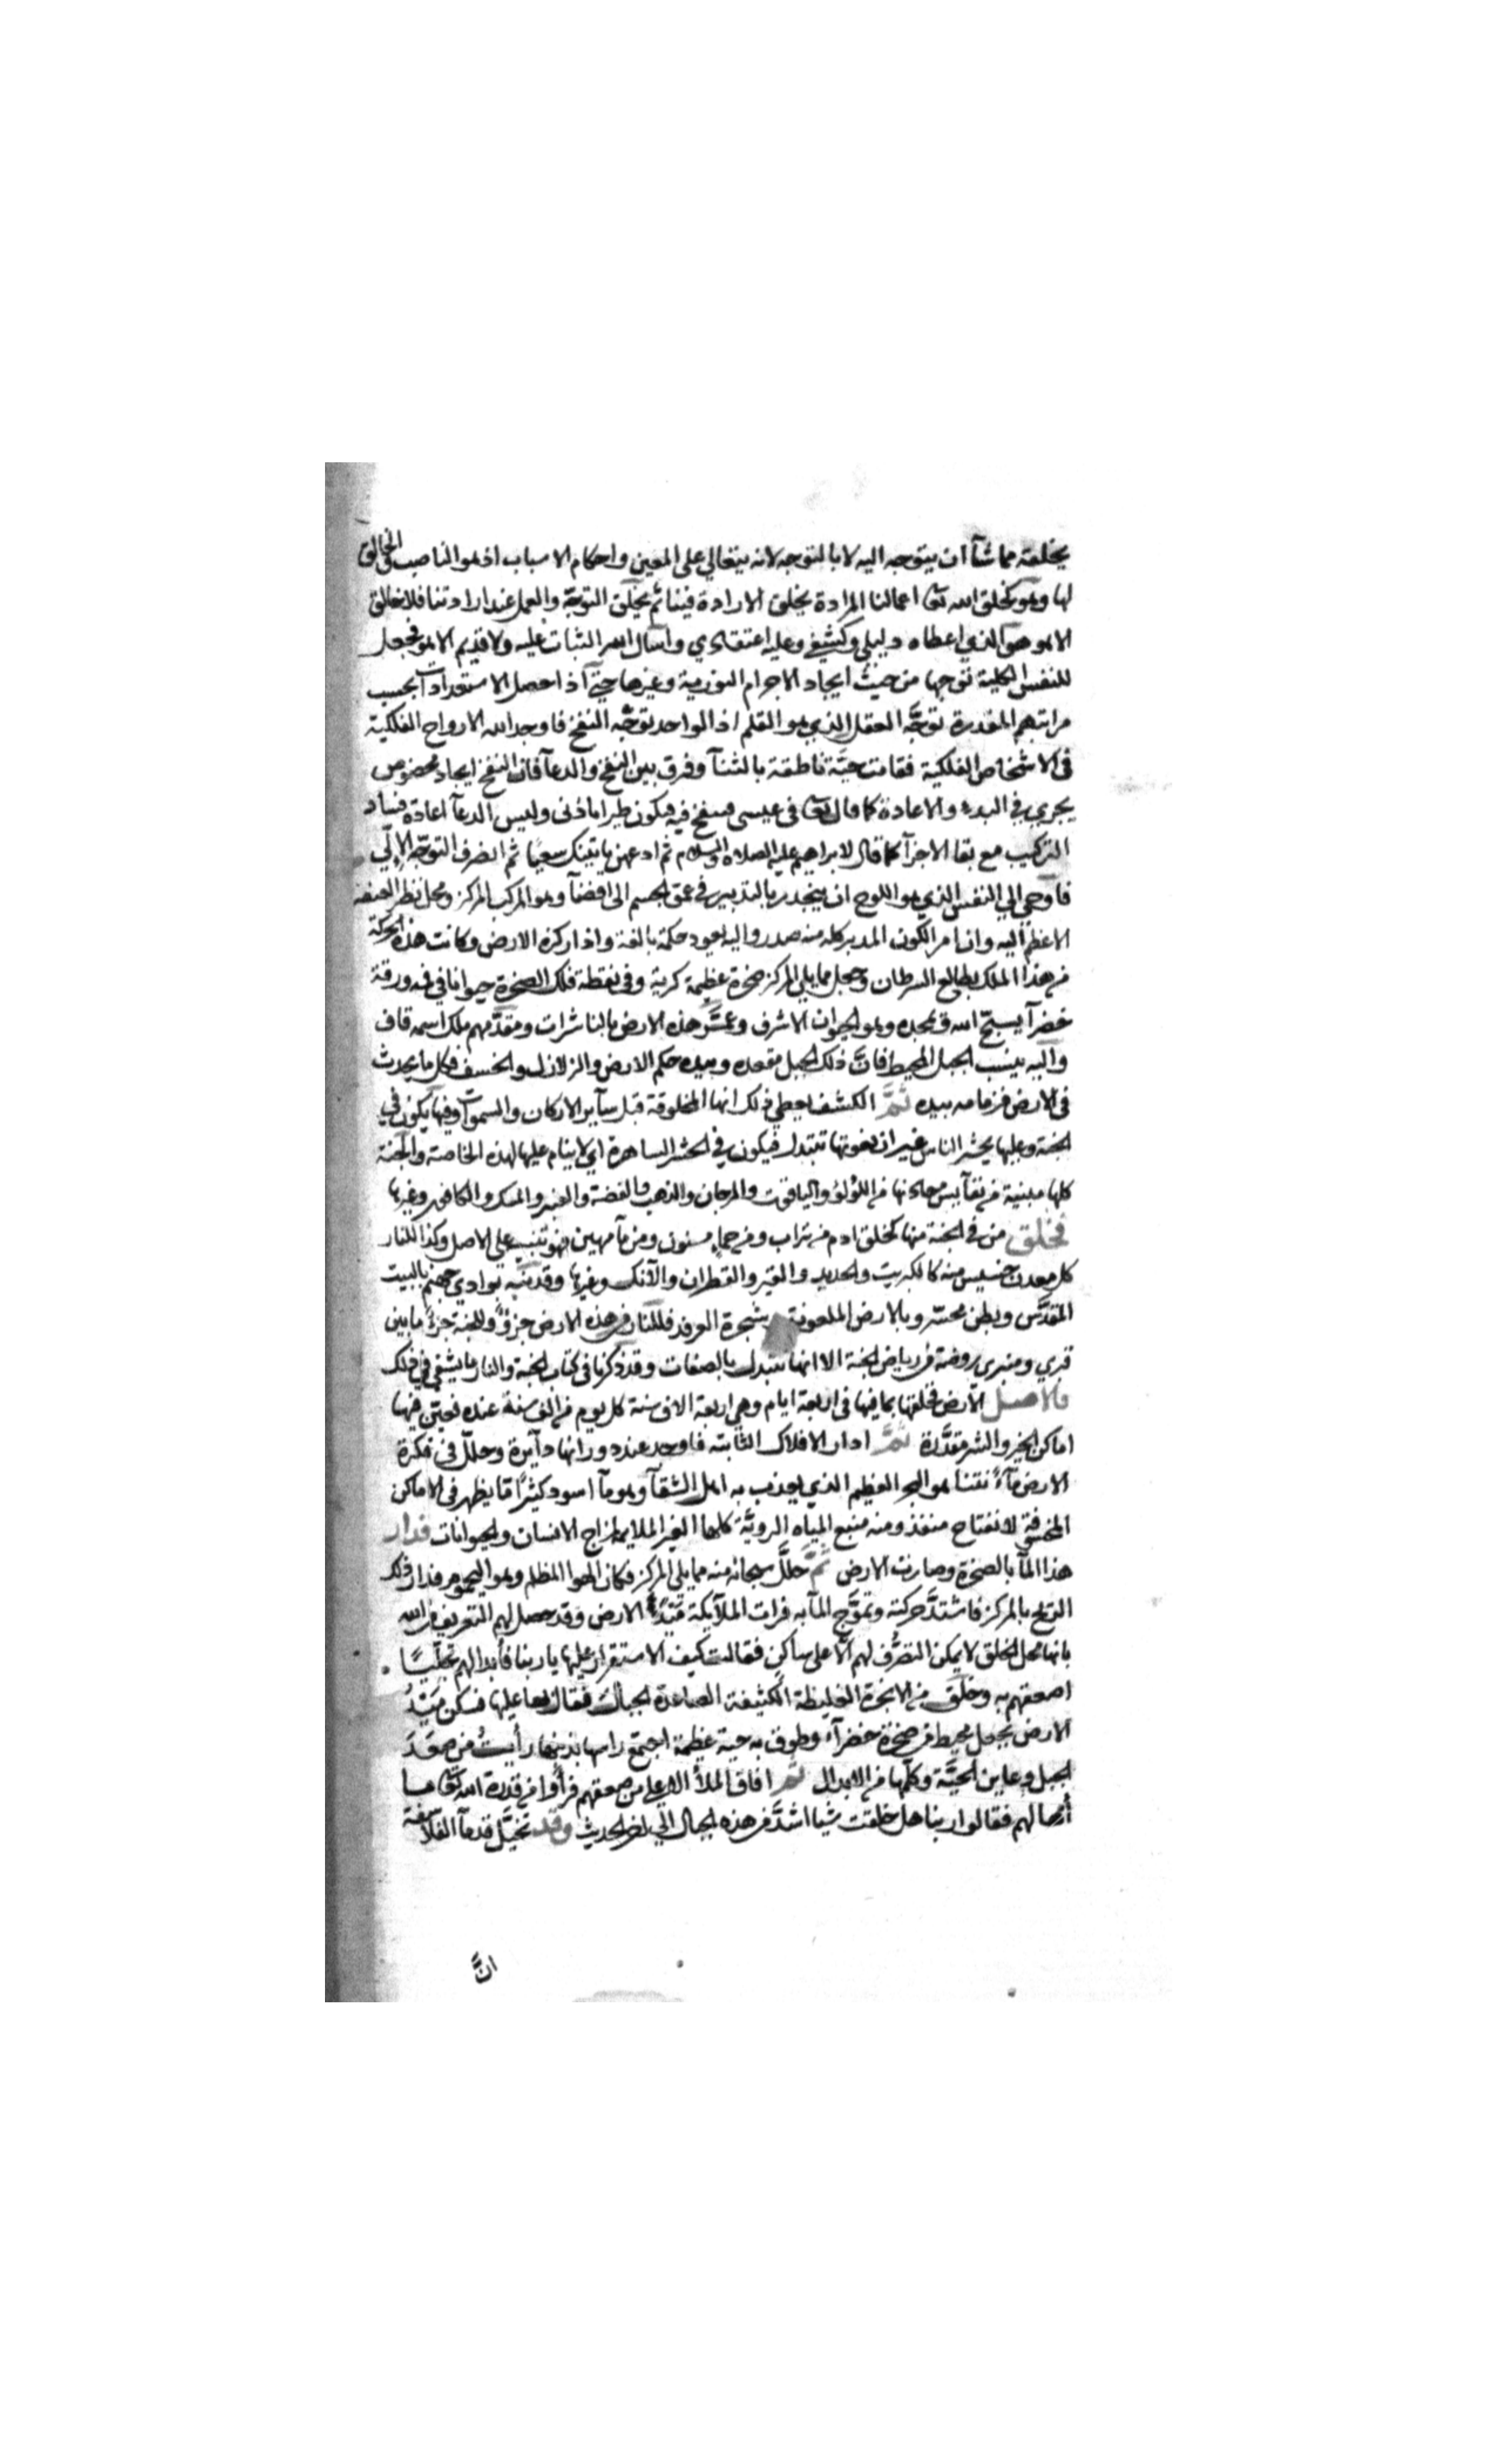 يخلقه مما شآ ان يتوجه اليه لا بالتوجه لانه يتعالى على المعين واحكام الاسباب اذ هو الناصب الخالق
لها وهو كخلق الله تعا اعمالنا المرادة بخلق الارادة فينا ثم يخلق التوجّه والعمل عند ارادتنا فلا خالق
الا هو هو الذي اعطاه دليلي وكشفي وعليه اعتقادي واسال الله الثبات عليه ولا قديم الا هو فجعل
للنفس الكلية توجها من حيث ايجاد الاجرام النورية وغيرها حتى اذا حصل الاستعدادات بحسب
مراتبهم المقدرة توجَّه العقل الذي هو القلم اذ الواحد توجّه النفخ فاوجد الله الارواح الفلكية
في الاشخاص الفلكية فقامت حيَّة ناطقة بالثنآ وفرق بين النفخ والدعآ فان النفخ ايجاد مخصوص
يجري في البدء والاعادة كما قال تعا في عيسى فينفخ فيه فيكون طيرا باذني وليس الدعآ اعادة فساد
التركيب مع بقا الاجزآ كما قال لابراهيم عليه الصلاة والسلام ثم ادعهن ياتينك سعيا ثم انصرف التوجّه الالٓي
فاوحي الي النفس الذي هو اللوح ان ينحدر بالتدبير في عمق الجسم الى اقصآ وهو المركب المركز ومحل نظر العنصر
الاعظم اليه وان امر الكون المدبر كله منه صدر واليه يعود حكمة بالغة واذار كرة الارض وكانت هذه الحركة
من هذا الملك بطالع السرطان وجعل مما يلي المركز صخرة عظيمة كرية وفي نقطة فلك الصخرة حيوانا في فيه ورقة
خضرآ يسبّح الله ويمجده وهو الحيوان الاشرف وعمَّر هذه الارض بالناشرات ومقدَّمهم ملك اسمه قاف
واليه ينسب الجبل المحيط فانَّ ذلك الجبل مقعده وبيده حكم الارض والزلازل والخسف فكل ما يحدث
في الارض فزمامه بيده ثمَّ الكشف يعطي ذلك انها المخلوقة قبل سآير الاركان والسموات وفيها يكون في
الجنة وعليها يحشر الناس غير ان نعوتها تتبدل فيكون في الحشر الساهرة اي لا ينام عليها لهذه الخاصة والجنة
كلها مبنية من نفآيس معادنها من اللؤلؤ والياقوت والمرجان والذهب والفضة والعنبر والمسك والكافور وغيرها
فخلق من في الجنة منها كخلق ادم من تراب ومن حماٍ مسنون ومن مآ مهين فهو تنبيه على الاصل وكذا للنار
كل معدن خسيس منه كالكبريت والحديد والقير والقطران والآنك وغيرها وقد نبّه بوادي جهنم بالبيت
المقدَّس وبطن محسّر وبالارض الملعونة وشجرة الغرقد فللنار من هذه الارض جزؤٌ وللجنة جزء ما بين
قبري ومنبري روضة من رياض الجنة الا انها تتبدل بالصفات وقد ذكرنا في كتاب الجنة والنار ما يشفي في ذلك
فالاصل الارض فخلقها بما فيها في اربعة ايام وهي اربعة الاف سنة كل يوم من الف سنة عنده فعين فيها
اماكن الخير والشر مقدَّرة ثمَّ ادار الافلاك الثابتة فاوجد عند دورانها دآيرة وحلل في فكرة
الارض مآءً نتنا هو البحر العظيم الذي يعذب به اهل الشقآ وهو مآ اسود كثيرًا ما يظهر في الاماكن
المخسوفة لانفتاح منفذ ومنه منبع المياه الرديَّة كلها الغير الملايمة لمزاج الانسان والحيوانات فدار
هذا المآ بالصخرة وصارت الارض ثمَّ حلّل سبحانه منه مما يلي المركز فكان الهوا المظلم وهو اليحموم فدار فلك
الريح بالمركز فاشتدَّ حركته وتموَّج المآ به فرات الملآيكة مَيْدَ الارض وقد حصل لهم التعريف من الله
بانها محل الخلق لا يمكن التصرُّف لهم الا على ساكن فقالت كيف الاستقرار عليها يا ربنا فأبدا لهم تجلّيًا
اصعقهم به وخلق من الابخرة الغليظة الكثيفة الصاعدة الجبال فقال بها عليها فسكن مَيْدُ
الارض بجبل محيط من صخرة خضرآء وطوق به حية عظيمة اجتمع راسها بذنبها رأيتُ من صعَدَ
الجبل وعاين الحيَّة وكلَّمها من الابدال ثمَّ افاق الملأ الاعلى من صعقهم فرأوا من قدرة الله تعا ما
أهالهم فقالوا ربنا هل خلقت شيا اشدَّ من هذه الجبال الي اخر الحديث وقد تخيَّل قدمآ الفلاسفة
انَّ